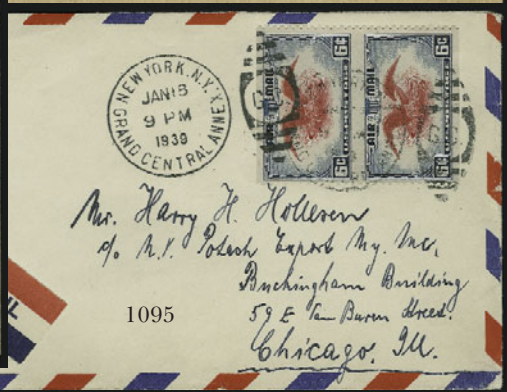 NEW YORK, N.Y.
JAN 18
9 PM
1939
GRAND CENTRAL ANNEX.
6¢ 6¢
AIR MAIL AIR MAIL
6¢ 6¢
Mr. Harry H. Holleren
c/o N.Y. Potash Export My. Inc,
Buckingham Building
59 E Van Buren Street.
Chicago, Ill.
1095